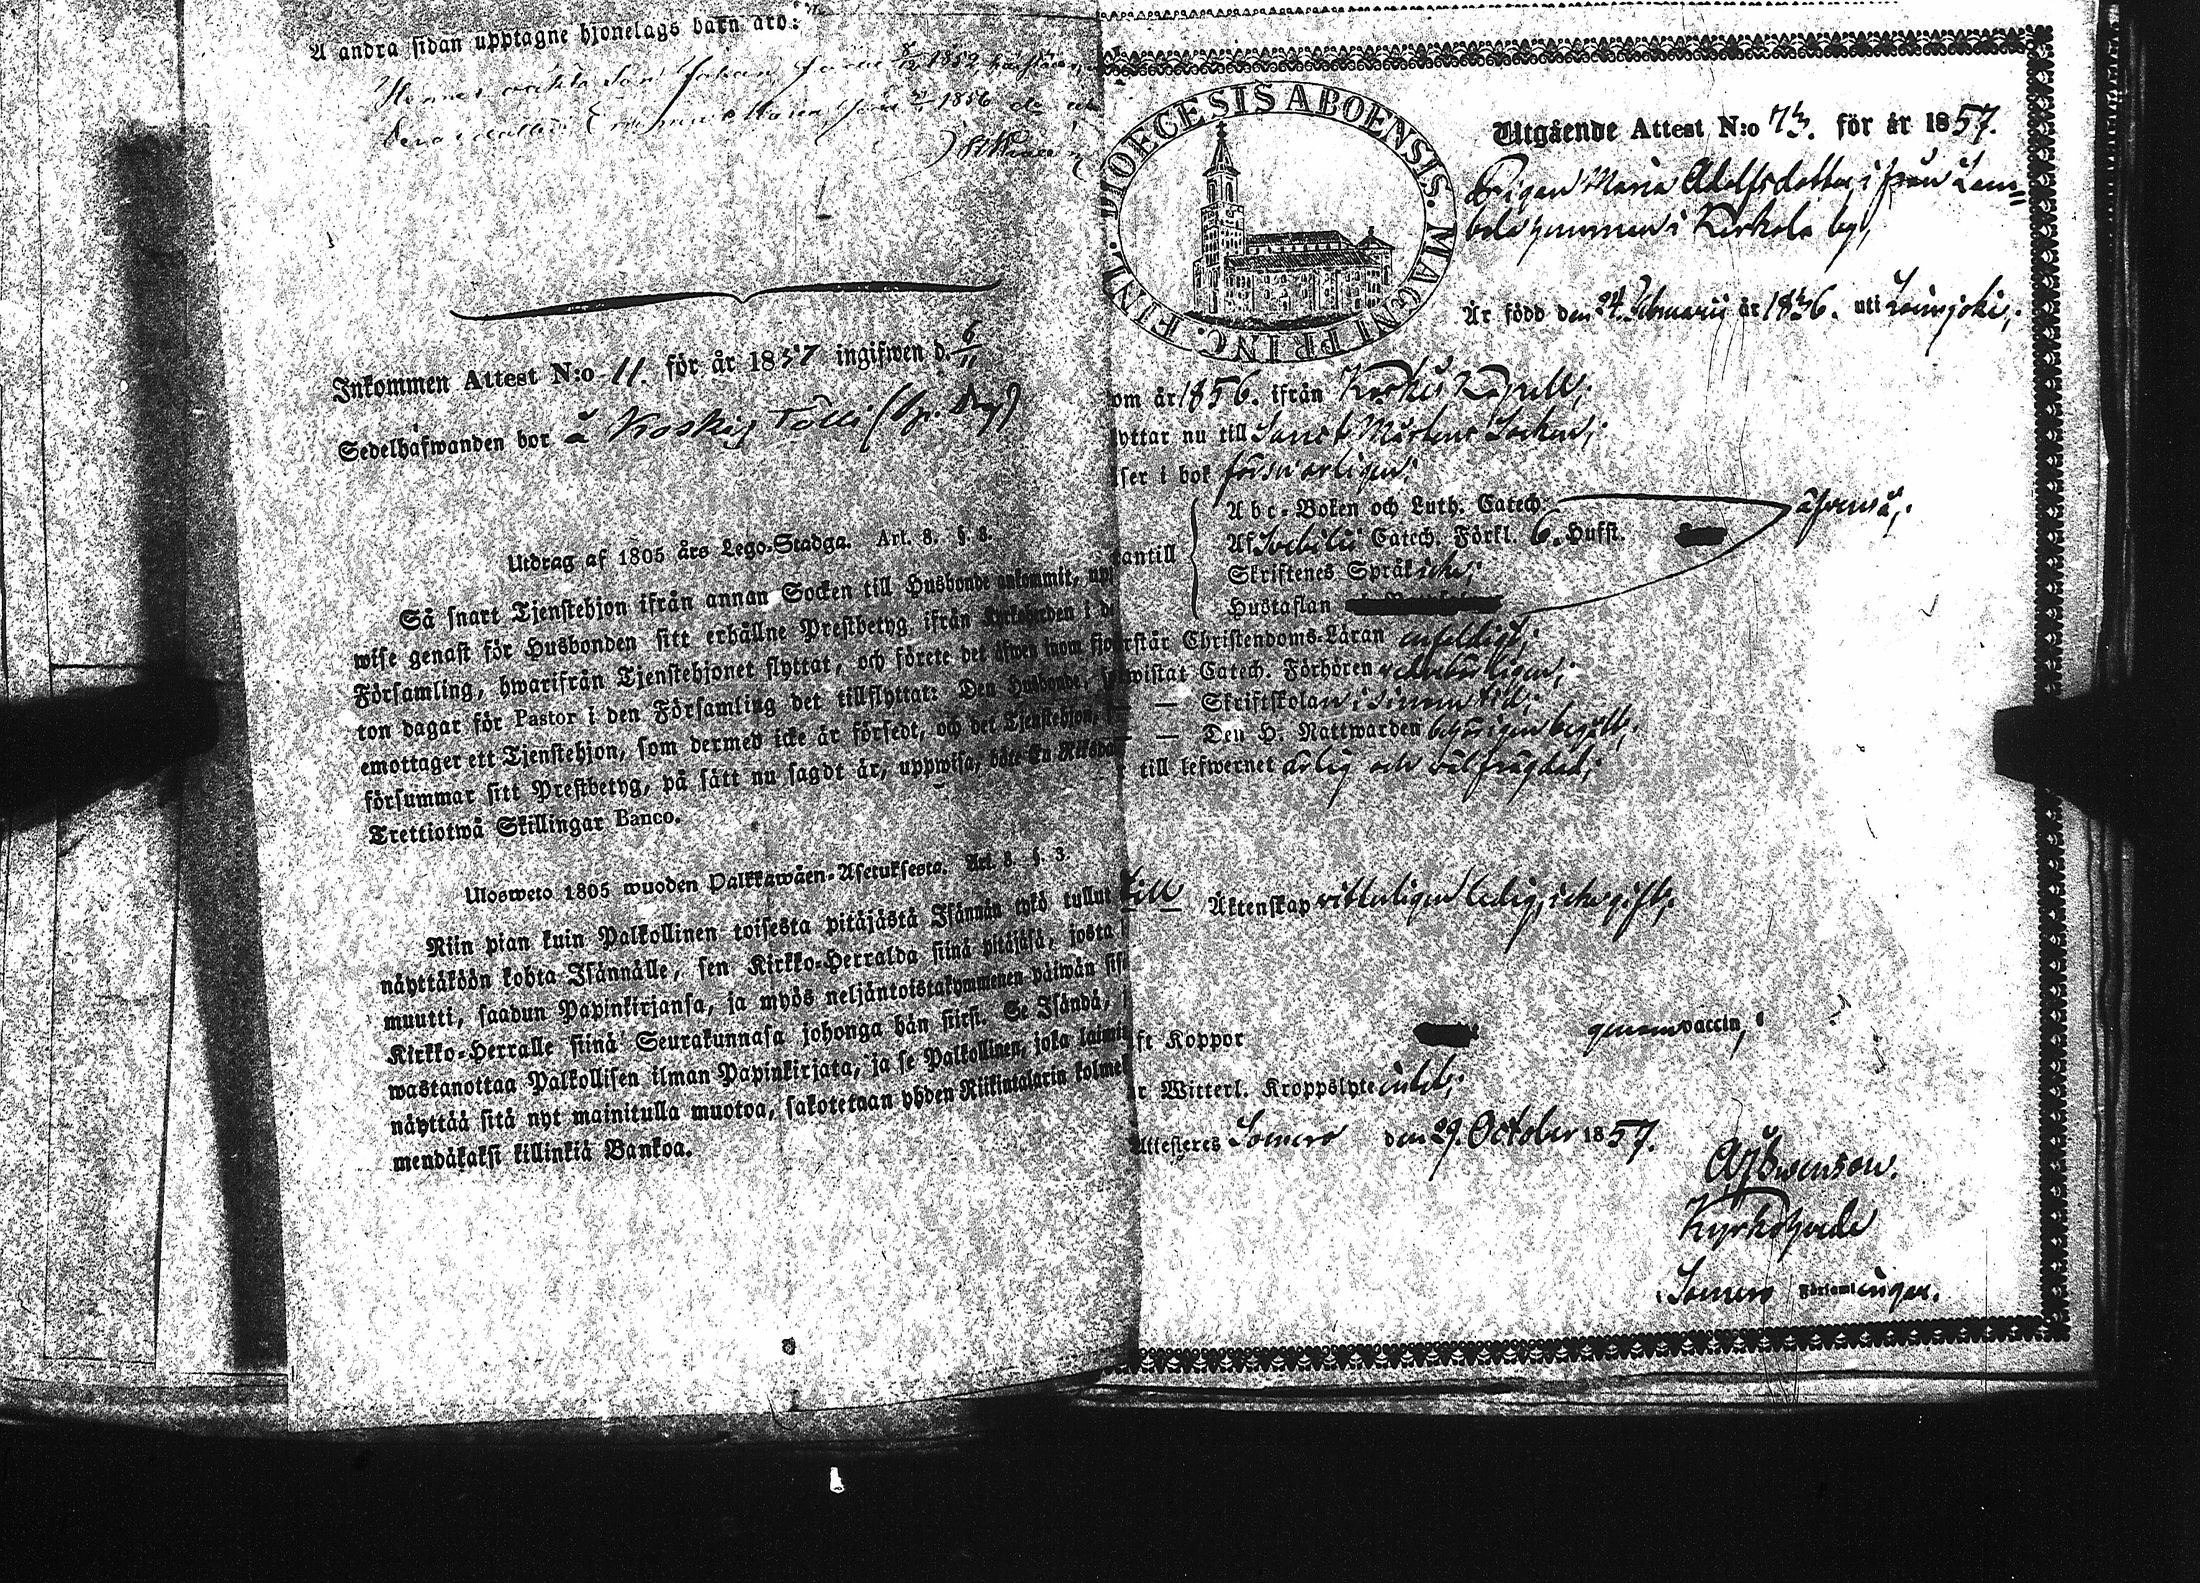 A andra sidan upptagne hjonelags barn äro:
Hennes oäkta Son Johan, född 1852,
1856
Inkommen Attest N:o 11. för år 1857 ingifwen d. 6/11
Sedelhafwanden bor å Koskis Tölli
Utdrag af 1805 års Lego-Stadga. Art. 8. §. 3.
Så snart Tjenstehjon ifrån annan Socken till Husbonde ankommit, upp
wise genast för Husbonden sitt erhållne Prestbetyg ifrån Kyrkoherden i de
Församling, hwarifrån Tjenstehjonet flyttat, och förete det äfwen inom fjor
ton dagar för Pastor i den Församling det tillflyttat: Den Husbonde, s
emottager ett Tjenstehjon, som dermed icke är försedt, och det Tjenstehjon,
försummar sitt Prestbetyg, på sätt nu sagdt är, uppwisa, böte En Riksda
Trettiotwå Skillingar Banco.
Ulosweto 1805 wuoden Palkkawäen-Asetuksesta. Art. 8. §. 3.
Niin pian kuin Palkollinen toisesta pitäjästä Isännän tykö tullut
näyttäköön kohta Isännälle, sen Kirkko-Herralda siinä pitäjäsä, josta
muutti, saadun Papinkirjansa, ja myös neljäntoistakymmenen päiwän sis
Kirkko-Herralle siinä Seurakunnasa johonga hän siirsi. Se Isändä,
wastanottaa Palkollisen ilman Papinkirjata, ja se Palkollinen, joka laimin
näyttää sitä nyt mainitulla muotoa, sakotetaan yhden Riikintalarin kolme
mendäkaksi killinkiä Bankoa.
DIOECESIS ABOENSIS. MAGNI PRINC. FINL.
Utgående Attest N:o 73. för år 1857.
Pigan Maria Adolfsdotter, ifrån Lam=
bola hemman i Kerkola by,
Är född den 24 Februarii år 1836. uti Loimjoki;
om år 1856. ifrån Koskis Kapell;
yttar nu till Sanct Mårtens Socken;
äser i bok försvarligen;
antill
Abc-Boken och Luth. Catech.
Af Svebilii Catech. Förkl. 6. Hufst.
Skriftenes Språk icke;
Hustaflan
äfwenså;
rstår Christendoms-Läran enfaldigt;
wistat Catech. Förhören
— Skriftskolan i sinom tid;
— Den H. Nattwarden behörigen begått;
till lefwernet ärlig och välfrägdad;
till Äktenskap vitterligen ledig, icke gift;
ft Koppor genom vaccin;
r Witterl. Kroppslyte intet;
Attesteres Somero den 29. October 1857.
Swenson.
Kyrkoherde
i Somero Församlingar.